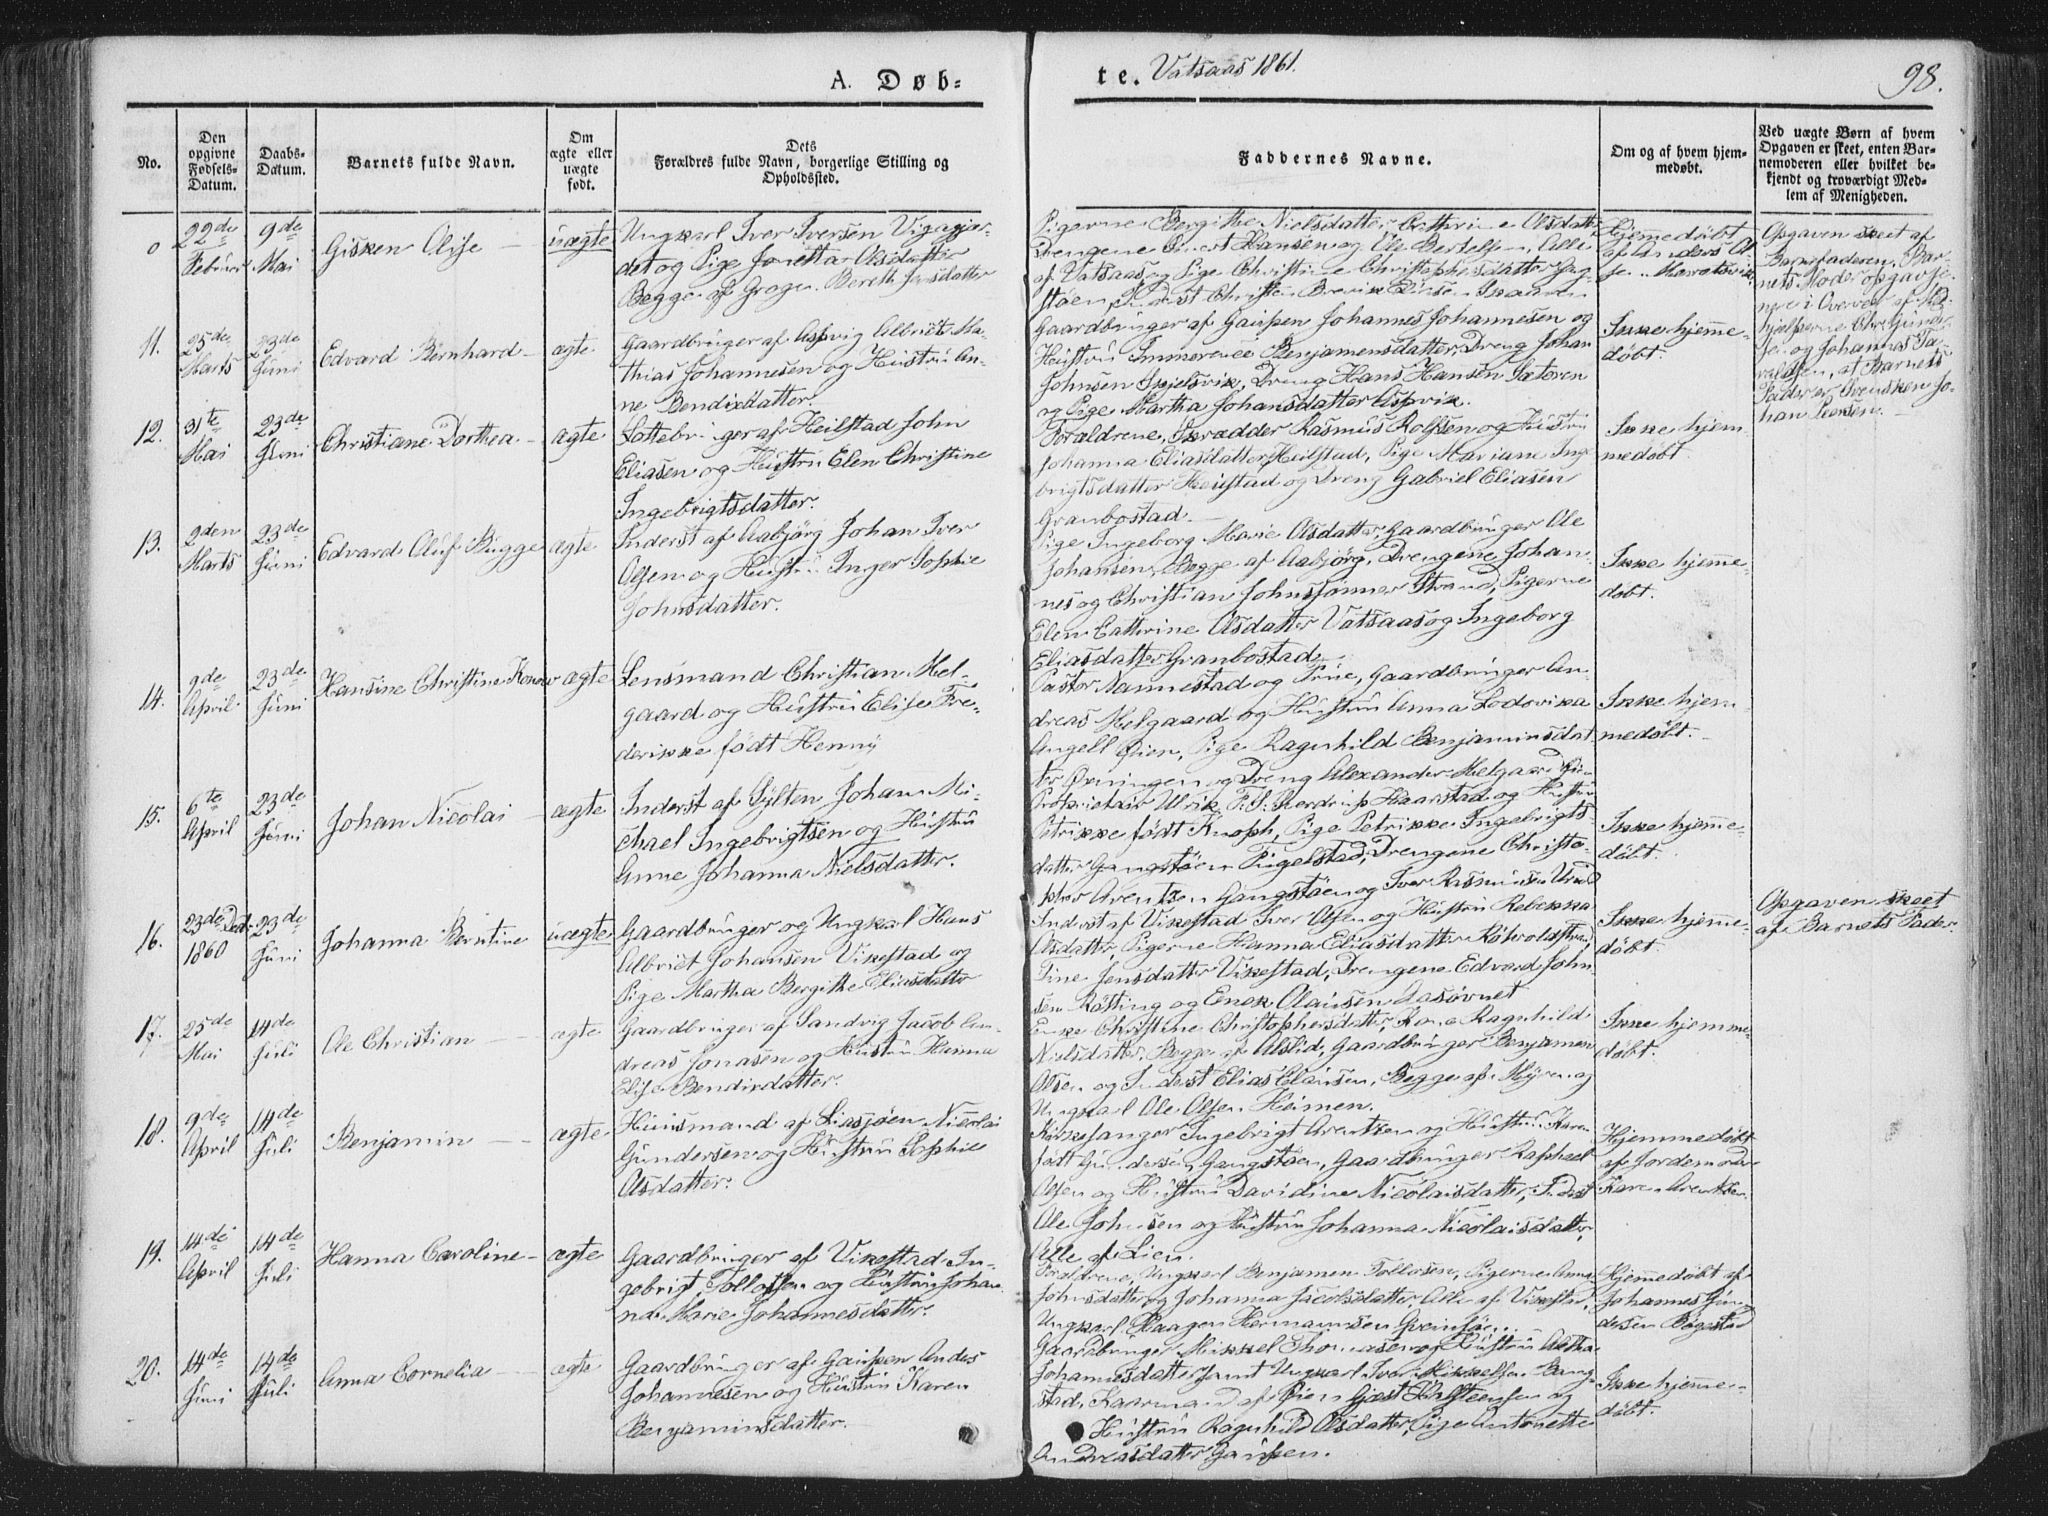 A. Døb-
te. Vatsaas 1861.
98.
No.
Den opgivne Fødsels-Datum.
Daabs-Datum.
Barnets fulde Navn.
Om ægte eller uægte født.
Dets Forældres fulde Navn, borgerlige Stilling og Opholdssted.
Faddernes Navne.
Om og af hvem hjem-
medøbt.
Ved uægte Børn af hvem
Opgaven er skeet, enten Bar-
nemoderen eller hvilket be-
kjendt og troværdigt Med-
lem af Menigheden.
0
22de Februar
9de Mai
Gisken Olise
uægte
Ungkarl Iver Iversen Vigagjær-
det og Pige Jonetta Olsdatter
Begge af Bereth Jensdatter
Pigerne Bergithe Nielsdatter, Cathrine Olsdatter
Drengene Hansen og Ole Bertelsen, Alle
af Vatsaas og Pige Christine Christophersdatter Gang-
støen, Inderst Christen
Hjemmedøbt
af Anders Ol-
sen
Opgaven skeet af
Barnefaderen, Bar-
nets Moder opgav se-
nere i Overvær af Med-
hjælperne Chr. Gunder-
sen og Johannes
at Barnets
Fader er Svensken Jo-
han
11.
25de Marts
23de Juni
Edvard Bernhard
ægte
Gaardbruger af Aspvig Albriet Ma-
thias Johannesen og Hustru An-
ne Bendixdatter
Gaardbruger af Gaupen Johannes Johannesen og
Hustru Immerence Benjamensdatter, Dreng Johan
Johnsen Skjelsvik, Dreng Hans Hansen Sæteren
og Pige Martha Johansdatter Aspvik.
Ikke hjemme-
døbt.
12.
31te Mai
23de Juni
Christiane Dorthea
ægte
Lottebruger af Heilstad John
Eliasen og Hustru Elen Christine
Ingebrigtsdatter.
Forældrene, Skrædder Rasmus Rolfsen og Hustru
Johanna Eliasdatter, Heilstad, Pige Mariane Inge-
brigtsdatter Heilstad og Dreng Gabriel Eliasen
Granbostad
Ikke hjem-
medøbt.
13.
2den Marts
23de Juni
Edvard Oluf Bugge
ægte
Inderst af Aabjørg Johan Iver
Olsen og Hustru Inger Sophie
Johnsdatter.
Pige Ingeborg Marie Olsdatter, Gaardbruger Ole
Johansen, Begge af Aabjørg, Drengene Johan-
nes og Christian Johnssønner Strand, Pigerne
Elen Cathrine Olsdatter Vatsaas og Ingeborg
Eliasdatter Granbostad
Ikke hjemme-
døbt.
14.
9de April
23de Juni
Hansine Christine Konow
ægte
Lensmand Christian Mel-
gaard og Hustru Elise Fre-
derikke født Henny
Pastor Nannestad og Frue, Gaardbruger An-
dreas Melgaard og Hustru Anna Lodovika
Angell Øien, Pige Ragnhild Benjaminsdat-
ter Øvningen og Dreng Alexander Melgaard Øien
Ikke hjem-
medøbt.
15.
6te April
23de Juni
Johan Nicolai
ægte
Inderst af Sylten Johan Mi-
chael Ingebrigtsen og Hustru
Anne Johanna Nielsdatter.
Proprietair Ulrik F. S. Skjerdrup Haarstad og Hustru
Petrikke født Knoph, Pige Petrikke Ingebrigts-
datter Gangstøen Drengene Christo-
pher Arentsen Gangstøen og Iver Rasmussen
Ikke hjemme-
døbt.
16.
23de Decbr 1860
23de Juni
Johanna Berntine
uægte
Gaardbruger og Ungkarl Hans
Albriet Johansen Vikestad og
Pige Martha Bergithe Eliasdatter
Inderst af Vikestad Iver Olsen og Hustru Rebekka
Olsdatter, Pigerne Hanna Eliasdatter
Tine Jensdatter Vikestad, Drengene Edvard John-
sen Røsting og Enok Olausen Aasøvnet
Ikke hjemme-
døbt.
Opgaven skeet
af Barnets Fader.
17.
25de Mai
14de Juli
Ole Christian
ægte
Gaardbruger af Sandvig Jacob An-
dreas Jonasen og Hustru Hanna
Elise Bendixdatter.
Enke Christine Christophersdatter, Kone Ragnhild
Nielsdatter, Begge af Alslid, Gaardbruger Benjamen
Olsen og Inderst Elias Clausen, Begge af Myren og
Ungkarl Ole Olsen Heimen.
Ikke hjemme-
døbt.
18.
9de April
14de Juli
Benjamin
ægte
Huusmand af Liasjøen Nicolai
Gundersen og Hustru Sophie
Olsdatter.
Kirkesanger Ingebrigt Arentsen og Hustru Karen
født Gundersen, Gangstøen, Gaardbruger Raphael
Olsen og Hustru Davidine Nicolaisdatter, Inderst
Ole Johnsen og Hustru Johanna Nicolaisdatter,
Alle af Lien.
Hjemmedøbt
af Jordemoder
Karen Arentsen.
19.
14de April
14de Juli
Hanna Caroline
ægte
Gaardbruger af Vikestad In-
gebrigt Tollofsen og Hustru Johan-
na Marie Johannesdatter.
Forældrene, Ungkarl Benjamen Tollofsen, Pigerne Anna
Johnsdatter og Johanna Jacobsdatter, Alle af Vikestad,
Ungkarl Haagen Hermannsen
Hjemmedøbt af
Johannes Gun-
dersen Bogestad
20.
14de Juni
14de Juli
Anna Cornelia
ægte
Gaardbruger af Gaupen Andes
Johannesen og Hustru Karen
Benjaminsdatter.
Gaardbruger Mikkel Thomasen og Hustru Aletha
Johannesdatter samt Ungkarl Iver Mikkelsen Bang-
stad, Kaarmand af Øien Gjest Holsteensen og
Hustru Ragnhild Olsdatter, Pige Antonette
Andreasdatter Gaupen.
Ikke hjemme-
døbt.